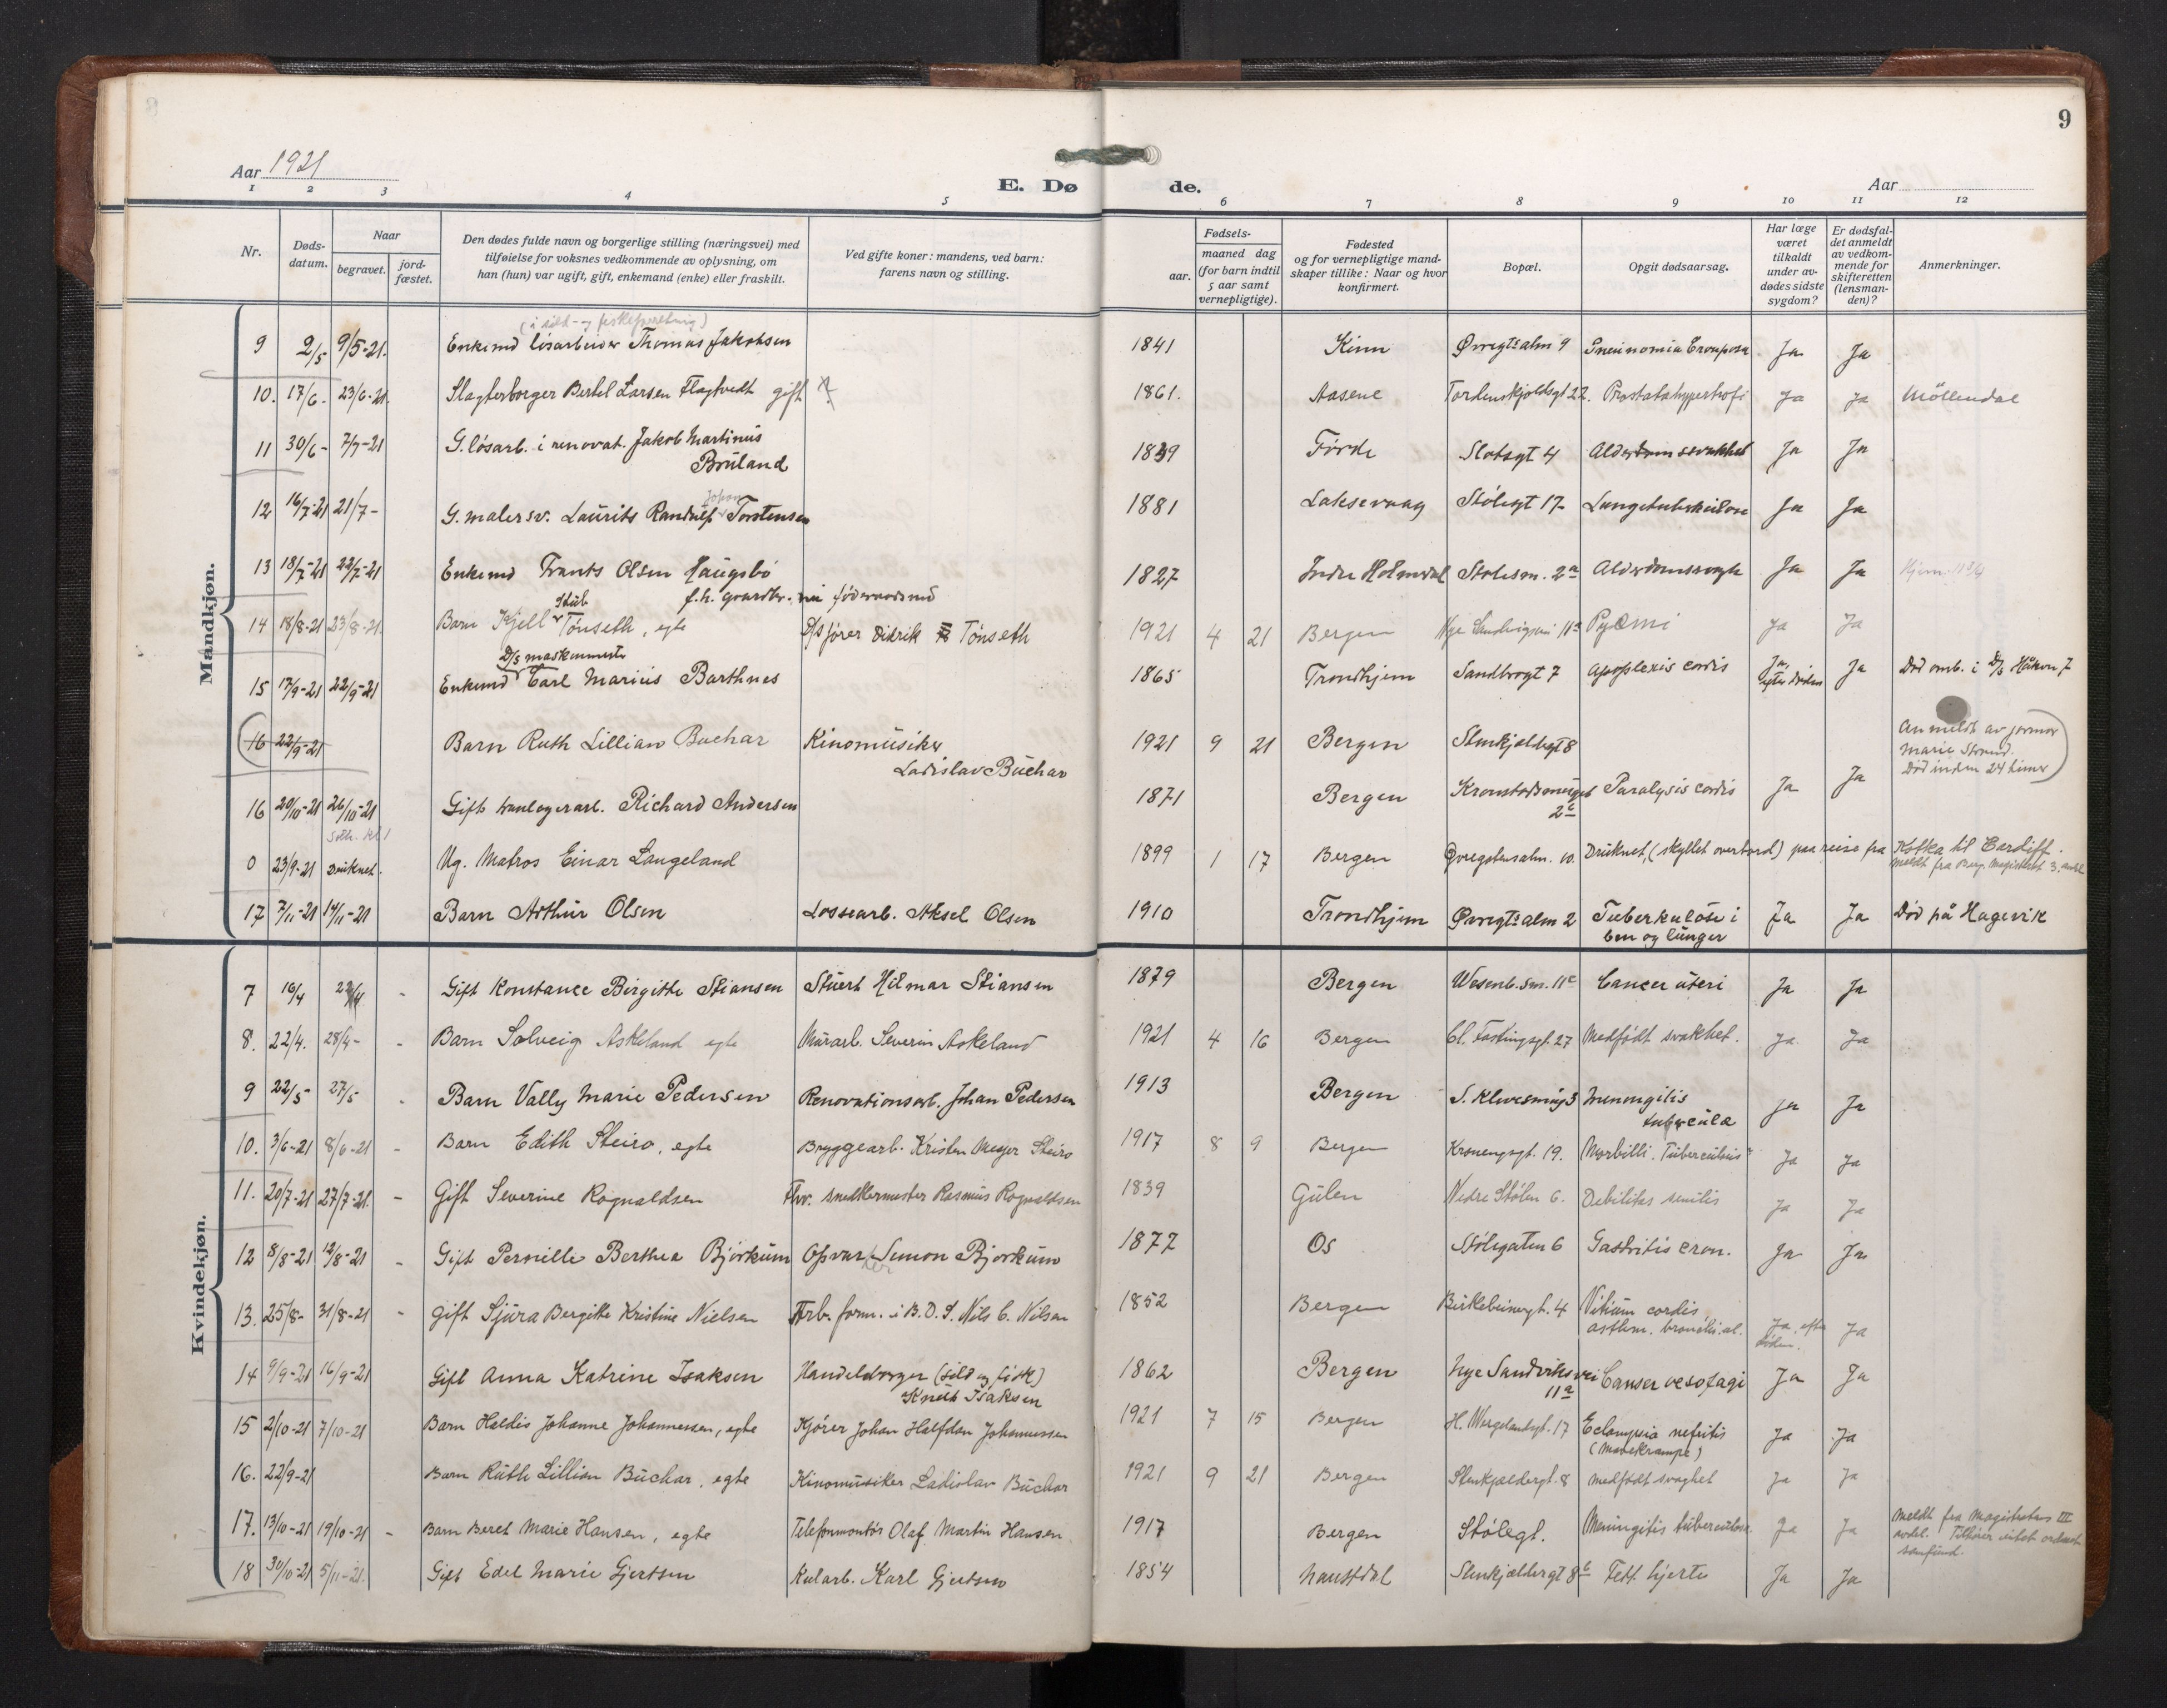 9
Aar 1921
E. Dø de.
Aar
1 2 3 4 5 6 7 8 9 10 11 12
Nr.
Døds-
datum.
Naar
begravet.
jord-
fæstet.
Den dødes fulde navn og borgerlige stilling (næringsvei) med
tilføielse for voksnes vedkommende av oplysning, om
han (hun) var ugift, gift, enkemand (enke) eller fraskilt.
Ved gifte koner: mandens, ved barn:
farens navn og stilling.
Fødsels-
aar.
maaned dag
(for barn indtil
5 aar samt
vernepligtige).
Fødested
og for vernepligtige mand-
skaper tillike: Naar og hvor
konfirmert.
Bopæl.
Opgit dødsaarsag.
Har læge
været
tilkaldt
under av-
dødes sidste
sygdom?
Er dødsfal-
det anmeldt
av vedkom-
mende for
skifteretten
(lensman-
den)?
Anmerkninger.
Mandkjøn.
9 2/5 9/5-21. Enkemd løsarbeider Thomas Jakobsen 1841 Kinn Øvregts alm 9 Ja Ja
10. 17/6- 23/6-21 Slagterborger Bertel Larsen Flagtvedt gift 1861. Aasene Tordenskjoldsgt 22. Prostatahypertrofi Ja Ja Møllendal
11 30/6- 7/7-21 G. løsarb. i renovat. Jakob Martinus
Bruland 1839 Førde Slotsgt 4 Alderdomssvakhet Ja Ja
12 16/7-21 21/7- G. malersv. Laurits Randulf Johan Torstensen 1881 Laksevaag Stølegt 17- Lungetuberkulose Ja Ja
13 18/7-21 22/7-21 Enkemd Frants Olsen Haugsbø
f.h. gaardbr. 1827 Indre Holmedal Stølesm. 2a Ja Ja
14 18/8-21 23/8-21 Barn Kjell Stub Tønseth, egte D/s fører Didrik Tønseth 1921 4 21 Bergen Nye Sandviksvei 11a Pyæmi Ja Ja
15 17/9-21 22/9-21 Enkemd D/s maskinmester Carl Marius Barthnes 1865 Trondhjem Sandbrogt 7 apoplexis cordis Ja, efter døden Ja Død omb. i D/s Håkon 7
16 22/9-21 Barn Ruth Lillian Buchar Kinomusiker
Ladislav Buchar 1921 9 21 Bergen Stenkjeldergt 8 Anmeldt av farmor
Marie Strand.
Død inden 24 timer
16 20/10-21 26/10-21 Gift tranlagerarb. Richard Andersen 1871 Bergen Kronstadsmuget
2c Paralysis cordis Ja Ja
0 23/9-21 Druknet. Ug. Matros Einar Langeland 1899 1 17 Bergen Øvregatensalm. 10. Druknet, (skyllet overbord) paa reise fra Kotka til Cardiff.
meldt fra Berg. Magistrat 3. avd.
17 7/11-21 14/11-21 Barn Arthur Olsen Lossearb. Aksel Olsen 1910 Trondhjem Øvregts alm 2 Tuberkuløse i
ben og lunger Ja Ja Død på Hagevik
Kvindekjøn.
7 16/4 - Gift Konstance Birgitte Stiansen Stuert Hilmar Stiansen 1879 Bergen Wesenb. sm. 11c Cancer uteri Ja Ja
8. 22/4. 28/4- - Barn Solveig Askeland egte Murarb. Severin Askeland 1921 4 16 Bergen Cl. Fastingsgt. 27 Medfødt svakhet. Ja Ja
9 22/5- 27/5 - Barn Vally Marie Pedersen Renovationsarb. Johan Pedersen 1913 Bergen Meningitis
tubercula Ja Ja
10. 3/6-21 8/6-21 - Barn Edith Steiro, egte Bryggearb. Kristen Meyer Steiro 1917 8 9 Bergen Kronengsgt. 19. Morbilli. Tuberculosis Ja Ja
11. 20/7-21 27/7-21. - Gift Severine Rognaldsen Fhv. snedkermester Rasmus Rognaldsen 1839 Gulen Nedre Stølen 6. Debilitas senilis Ja Ja
12 8/8-21 12/8-21 - Gift Pernille Berthea Bjørkum Opvarter Simon Bjørkum 1877 Os Stølegaten 6 Gastritis cron. Ja Ja
13. 25/8- 31/8-21 - Gift Sjura Bergitte Kristine Nielsen Arb. form. i B.D.S. Nils C. Nilsen 1852 Bergen Birkebeinergt. 4 Vitium cordis,
asthm. bronchi.al. Ja, efter
døden. Ja
14 9/9-21 16/9-21 Gift Anna Katrine Isaksen Handelsborger (sild og fisk)
Knut Isaksen 1862 Bergen Nye Sandviksvei
11a Canser oesofagi Ja Ja
15 2/10-21 7/10-21 Barn Haldis Johanne Johannessen, egte Kjører Johan Halfdan Johannessen 1921 7 15 Bergen H. Wergelandsgt. 17 Eclampsia nefritis
(Mavekrampe) Ja Ja
16. 22/9-21 Barn Ruth Lillian Buchar, egte Kinomusiker Ladislav Buchar 1921 9 21 Bergen Stenkjeldergt. 8 medfødt svaghet Ja Ja
17. 13/10-21 19/10-21 - Barn Beret Marie Hansen, egte Telefonmontør Olaf Martin Hansen 1917 Bergen Stølegt. Meningitis tuberculosa Ja Ja Meldt fra Magistratens III
avdel.
samfund.
18 30/10-21 5/11-21. Gift Edel Marie Gjertsen Kularb. Karl Gjertsen 1854 Naustdal Stenkjeldergt 8b Fedt hjerte Ja Ja